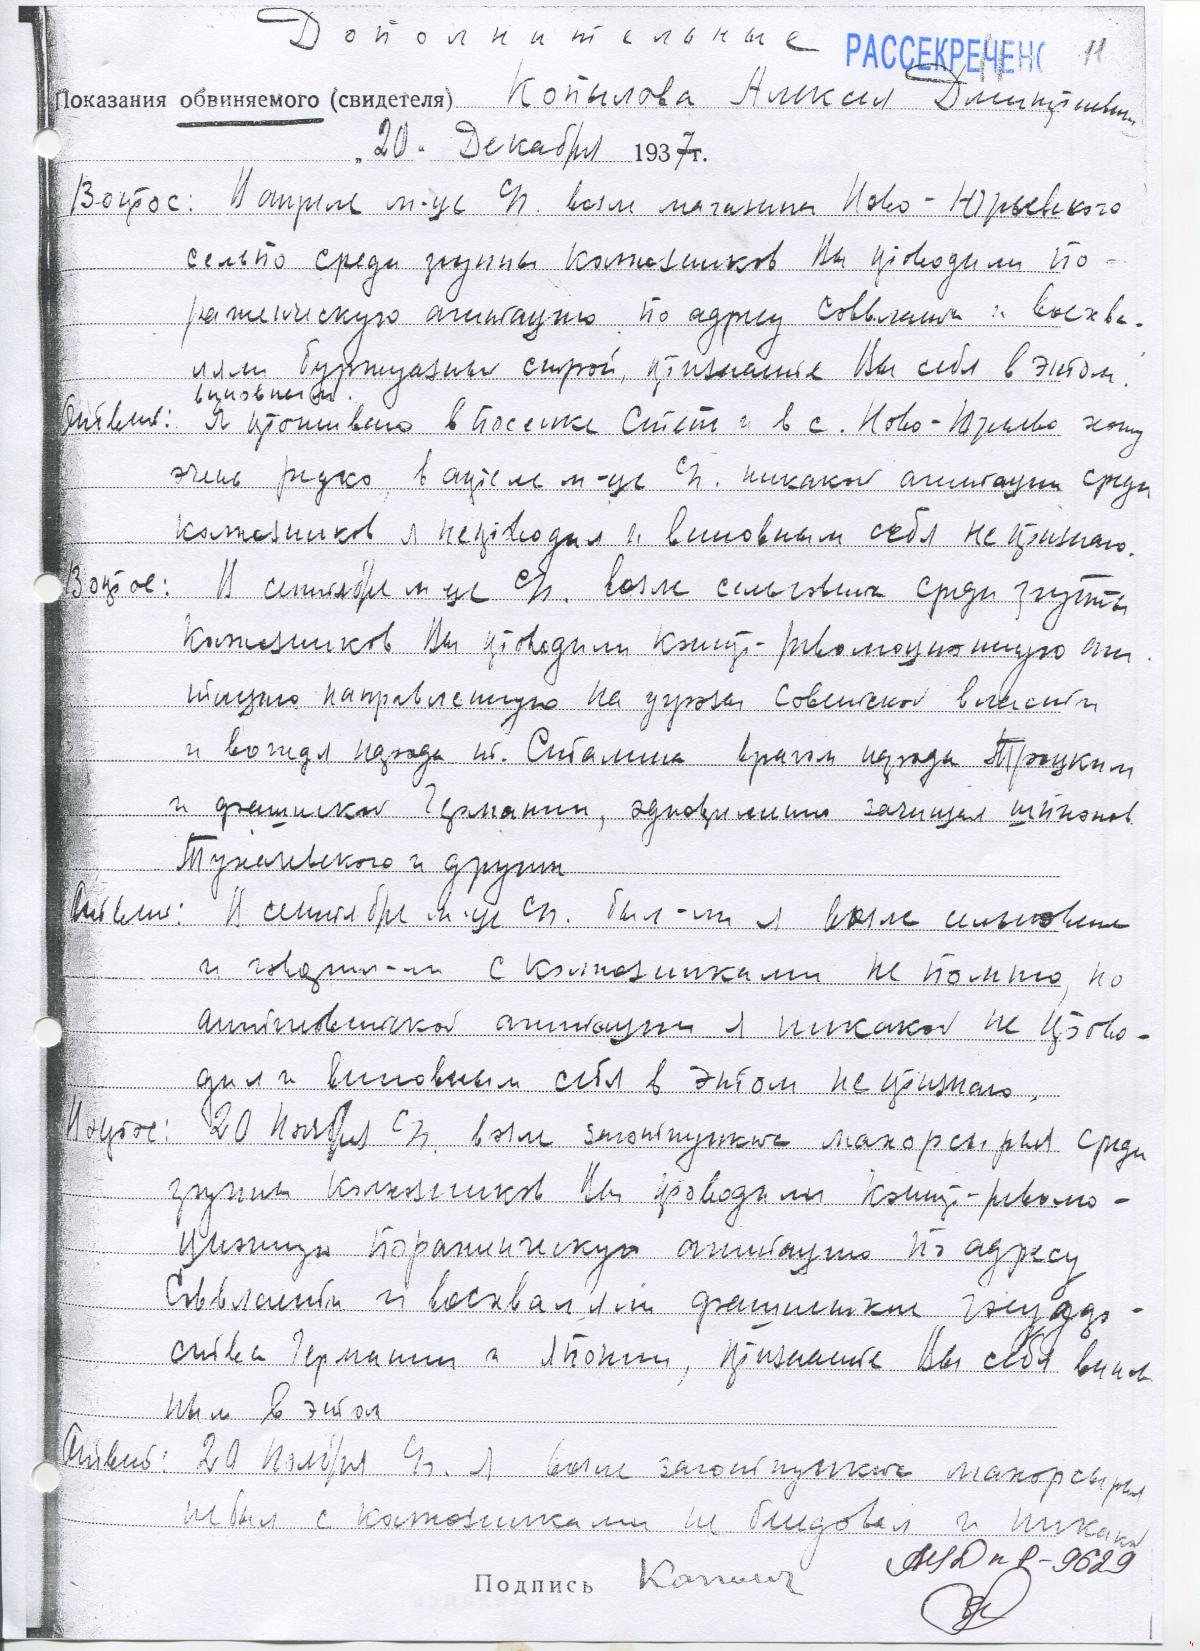 Дополнительные
РАССЕКРЕЧЕНО 11
Показания обвиняемого (свидетеля) Копылова Алексея Дмитриевича
"20" Декабря 1937г.
Вопрос: В апреле м-це с/г. возле магазина Ново-Юрьевского
сельпо среди группы колхозников Вы проводили по-
раженческую агитацию по адресу Соввласти и восхва-
ляли буржуазный строй, признаете Вы себя в этом
виновным.
Ответ: Я проживаю в поселке Степь и в с. Ново-Юрьево хожу
очень редко, в апреле м-це с/г. никакой агитации среди
колхозников я не проводил и виновным себя не признаю.
Вопрос: В сентябре м-це с/г. возле сельсовета среди группы
колхозников Вы проводили контр-революционную аги-
тацию направленную на угрозы Советской власти
и вождя народа т. Сталина врагом народа Троцким
и фашисткой Германии, одновременно защищал шпионов
Тухачевского и других
Ответ: В сентябре м-це с/г. был-ли я возле сельсовета
и говорил-ли с колхозниками не помню, но
антисоветской агитации я никакой не прово-
дил и виновным себя в этом не признаю.
Вопрос: 20 Ноября с/г. возле заготпункта махорсырья среди
группы колхозников Вы проводили контр-револю-
ционную пораженческую агитацию по адресу
Соввласти и восхваляли фашисткие государ-
ства Германии и Японии, признаете Вы себя винов
ным в этом
Ответ: 20 Ноября с/г. я возле заготпункта махорсырья
не был с колхозниками не беседовал и никакой
Подпись Копылов
Р-9629